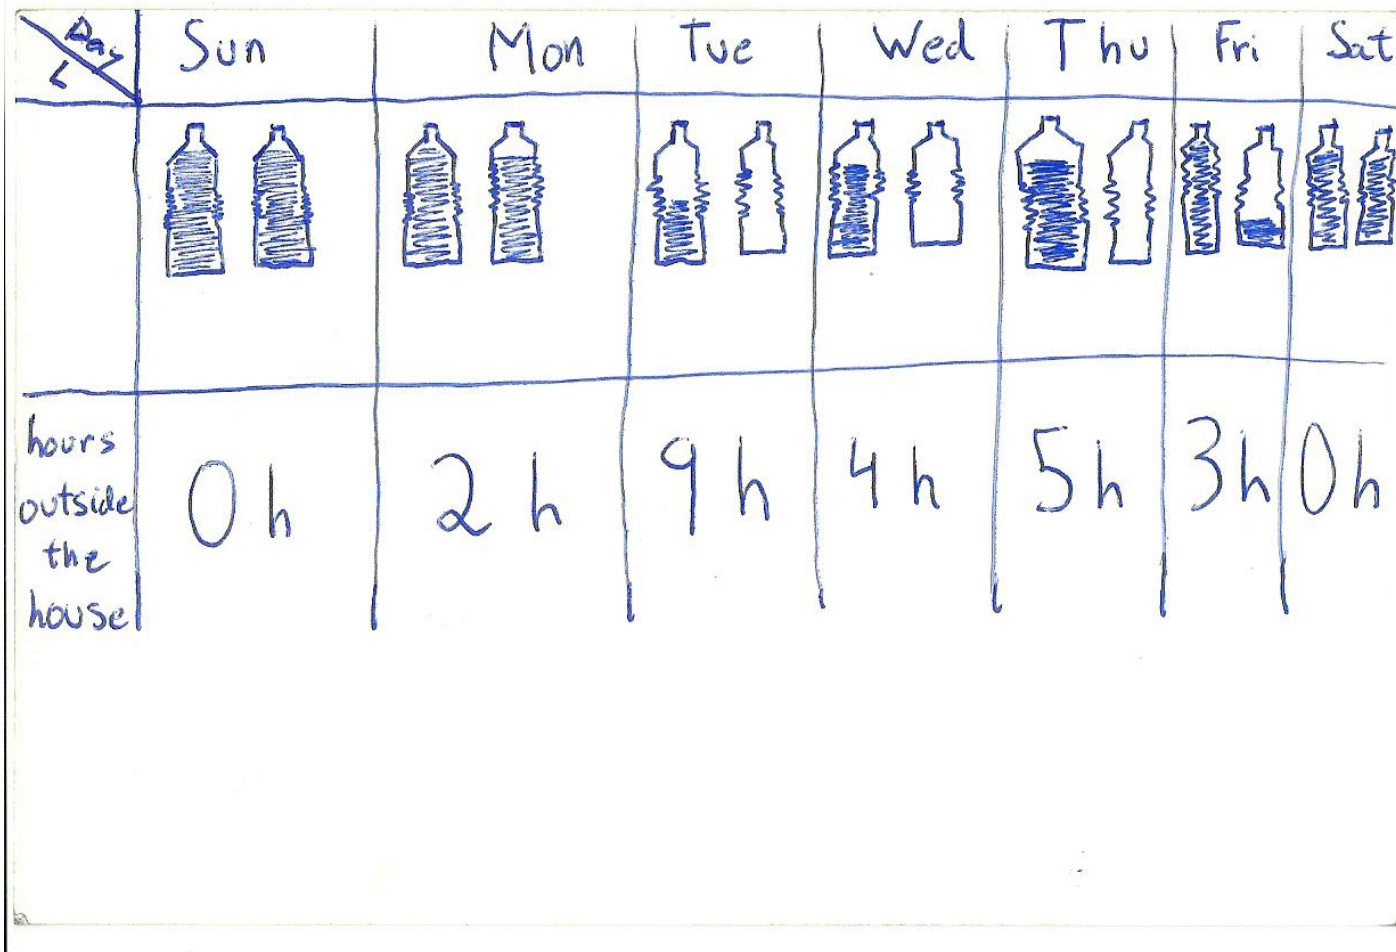 Day Sun Mon Tue Wed Thu Fri Sat
L
hours
outside
the
house
0 h 2 h 9 h 4 h 5 h 3 h 0 h